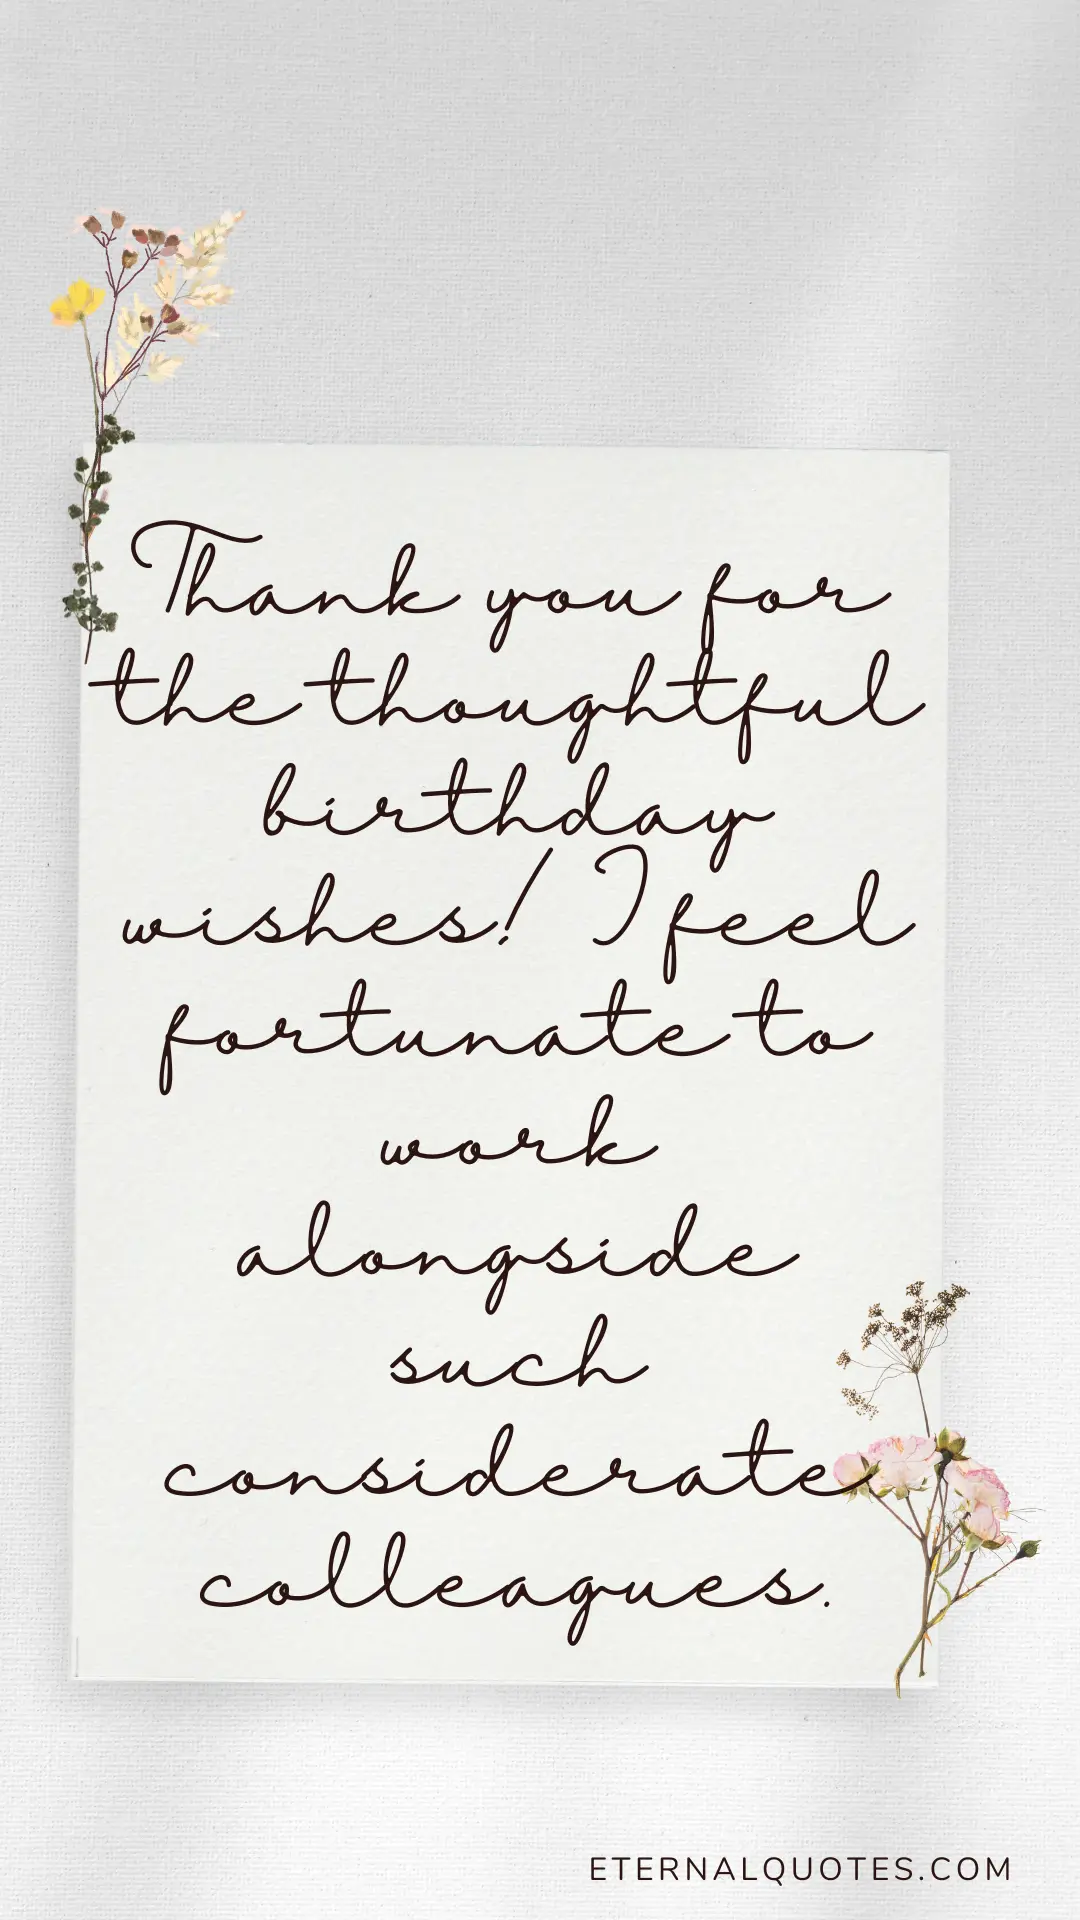 Thank you for
the thoughtful
birthday
wishes! I feel
fortunate to
work
alongside
such
considerate
colleagues.
ETERNALQUOTES.COM